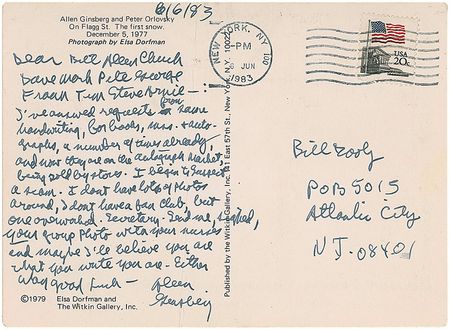 6/6/83
Allen Ginsberg and Peter Orlovsky
On Flagg St. The first snow.
December 5, 1977
Photograph by Elsa Dorfman
Dear Bill Aleen Chuck
Dave Mark Pete George
Frank Tim Steve Arnie —
I've answered requests from same
handwriting, for books, mss. & auto-
graphs, a number of times already,
and now they are on the autograph market,
being sold by stores. I begin to suspect
a scam. I dont have lots of Photos
around, I dont have a fan club, but
one overworked Secretary. Send me, signed,
your group photo with your nurses
and maybe I'll believe you are
what you write you are. Either
way good luck —
©1979 Elsa Dorfman and
The Witkin Gallery, Inc.
Published by the Witkin Gallery, Inc. 41 East 57th St., New York, N.Y. 10022
NEW YORK, NY 100
PM
6 JUN
1983
USA
20c
Bill
POB 5015
Atlantic City
N.J. 08401